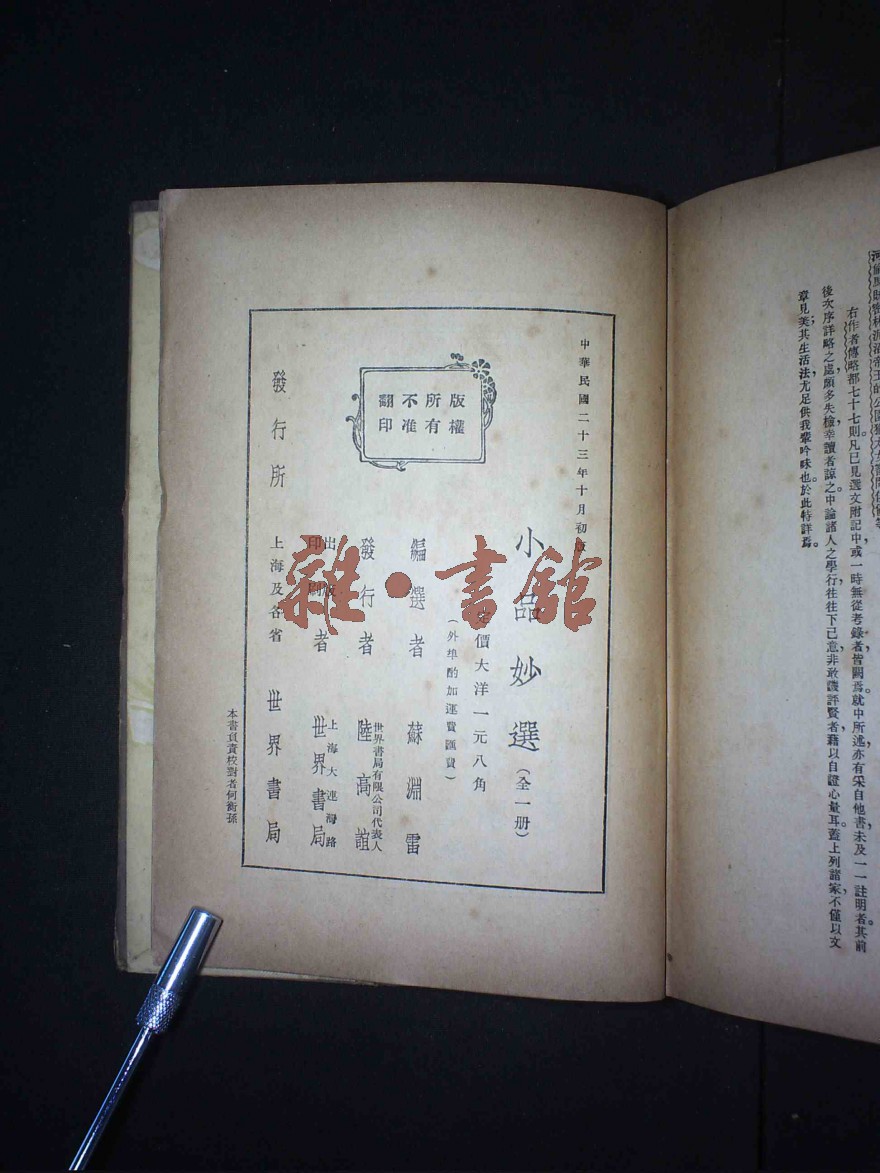 河
右作者傳略都七十七則凡已見選文附記中或一時無從考錄者皆闕焉就中所述亦有采自他書未及一一註明者其前
後次序詳略之處頗多失檢幸讀者諒之中論諸人之學行往往下己意非敢謾評賢者藉以自證心量耳蓋上列諸家不僅以文
章見美其生活法尤足供我輩吟味也於此特詳焉。
中華民國二十三年十月初版
版權
所有
不准
翻印
小品妙選(全一册)
定價大洋一元八角
(外埠酌加運費匯費)
編選者 蘇淵雷
發行者 世界書局有限公司代表人 陸高誼
出版
印刷者 上海大連灣路 世界書局
發行所 上海及各省 世界書局
本書負責校對者何衡孫
雜·書館